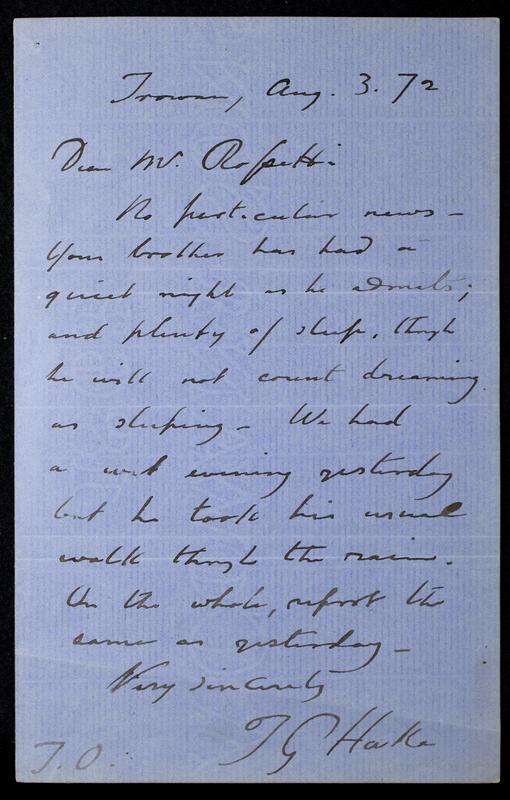 Trowan, Aug. 3. 72
Dear Mr. Rossetti
No particular news –
Your brother has had a
quiet night as he admits;
and plenty of sleep, though
he will not count dreaming
as sleeping – We had
a wet evening yesterday
but he took his usual
walk though the rain.
On the whole, report the
same as yesterday –
Very sincerely
T G Hake
T.O.